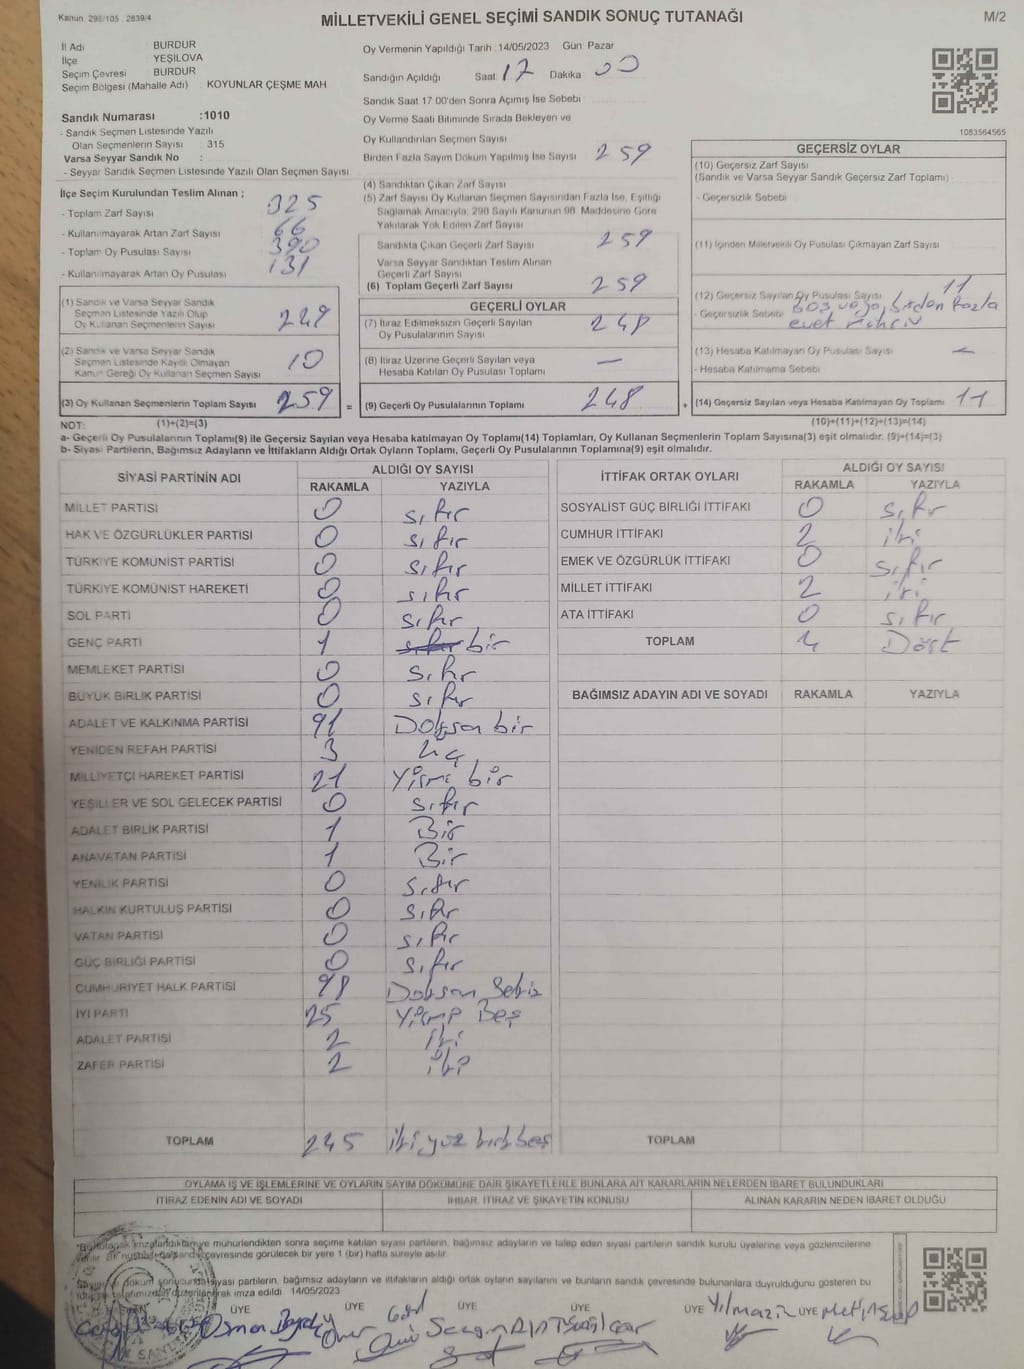 Kanun 298/105 . 2839/4
MİLLETVEKİLİ GENEL SEÇİMİ SANDIK SONUÇ TUTANAĞI
M/2
İl Adı BURDUR
İlçe YEŞİLOVA
Seçim Çevresi BURDUR
Seçim Bölgesi (Mahalle Adı) : KOYUNLAR ÇEŞME MAH
Sandık Numarası :1010
- Sandık Seçmen Listesinde Yazılı
Olan Seçmenlerin Sayısı : 315
Varsa Seyyar Sandık No :
- Seyyar Sandık Seçmen Listesinde Yazılı Olan Seçmen Sayısı
İlçe Seçim Kurulundan Teslim Alınan ;
- Toplam Zarf Sayısı 325
- Kullanılmayarak Artan Zarf Sayısı 66
- Toplam Oy Pusulası Sayısı 390
- Kullanılmayarak Artan Oy Pusulası 131
(1) Sandık ve Varsa Seyyar Sandık
Seçmen Listesinde Yazılı Olup
Oy Kullanan Seçmenlerin Sayısı 249
(2) Sandık ve Varsa Seyyar Sandık
Seçmen Listesinde Kayıtlı Olmayan
Kanun Gereği Oy Kullanan Seçmen Sayısı 10
(3) Oy Kullanan Seçmenlerin Toplam Sayısı 259 =
(1)+(2)=(3)
Oy Vermenin Yapıldığı Tarih :14/05/2023 Gün: Pazar
Sandığın Açıldığı Saat: 17 Dakika 00
Sandık Saat 17 00'den Sonra Açımış İse Sebebi
Oy Verme Saati Bitiminde Sırada Bekleyen ve
Oy Kullandırılan Seçmen Sayısı
Birden Fazla Sayım Döküm Yapılmış İse Sayısı 259
(4) Sandıktan Çıkan Zarf Sayısı
(5) Zarf Sayısı Oy Kullanan Seçmen Sayısından Fazla İse, Eşitliği
Sağlamak Amacıyla, 298 Sayılı Kanunun 98. Maddesine Göre
Yakılarak Yok Edilen Zarf Sayısı
Sandıkta Çıkan Geçerli Zarf Sayısı 259
Varsa Seyyar Sandıktan Teslim Alınan
Geçerli Zarf Sayısı
(6) Toplam Geçerli Zarf Sayısı 259
GEÇERLİ OYLAR
(7) İtiraz Edilmeksizin Geçerli Sayılan
Oy Pusulalarının Sayısı 248
(8) İtiraz Üzerine Geçerli Sayılan veya
Hesaba Katılan Oy Pusulası Toplamı —
(9) Geçerli Oy Pusulalarının Toplamı 248 +
1083564565
GEÇERSİZ OYLAR
(10) Geçersiz Zarf Sayısı
(Sandık ve Varsa Seyyar Sandık Geçersiz Zarf Toplamı)
- Geçersizlik Sebebi
(11) İçinden Milletvekili Oy Pusulası Çıkmayan Zarf Sayısı
(12) Geçersiz Sayılan Oy Pusulası Sayısı 11
- Geçersizlik Sebebi boş veya birden fazla
evet
(13) Hesaba Katılmayan Oy Pusulası Sayısı —
- Hesaba Katılmama Sebebi
(14) Geçersiz Sayılan veya Hesaba Katılmayan Oy Toplamı 11
(10)+(11)+(12)+(13)=(14)
NOT:
a- Geçerli Oy Pusulalarının Toplamı(9) ile Geçersiz Sayılan veya Hesaba katılmayan Oy Toplamı(14) Toplamları, Oy Kullanan Seçmenlerin Toplam Sayısına(3) eşit olmalıdır. (9)+(14)=(3)
b- Siyasi Partilerin, Bağımsız Adayların ve İttifakların Aldığı Ortak Oyların Toplamı, Geçerli Oy Pusulalarının Toplamına(9) eşit olmalıdır.
SİYASİ PARTİNİN ADI ALDIĞI OY SAYISI
RAKAMLA YAZIYLA
MİLLET PARTİSİ 0 sıfır
HAK VE ÖZGÜRLÜKLER PARTİSİ 0 sıfır
TÜRKİYE KOMÜNİST PARTİSİ 0 sıfır
TÜRKİYE KOMÜNİST HAREKETİ 0 sıfır
SOL PARTİ 0 sıfır
GENÇ PARTİ 1 sıfır bir
MEMLEKET PARTİSİ 0 sıfır
BÜYÜK BİRLİK PARTİSİ 0 sıfır
ADALET VE KALKINMA PARTİSİ 91 Doksan bir
YENİDEN REFAH PARTİSİ 3 üç
MİLLİYETÇİ HAREKET PARTİSİ 21 Yirmi bir
YEŞİLLER VE SOL GELECEK PARTİSİ 0 sıfır
ADALET BİRLİK PARTİSİ 1 Bir
ANAVATAN PARTİSİ 1 Bir
YENİLİK PARTİSİ 0 sıfır
HALKIN KURTULUŞ PARTİSİ 0 sıfır
VATAN PARTİSİ 0 sıfır
GÜÇ BİRLİĞİ PARTİSİ 0 sıfır
CUMHURİYET HALK PARTİSİ 98 Doksan Sekiz
İYİ PARTİ 25 Yirmi Beş
ADALET PARTİSİ 2 iki
ZAFER PARTİSİ 2 iki
TOPLAM 245 iki yüz kırk beş
İTTİFAK ORTAK OYLARI ALDIĞI OY SAYISI
RAKAMLA YAZIYLA
SOSYALİST GÜÇ BİRLİĞİ İTTİFAKI 0 sıfır
CUMHUR İTTİFAKI 2 iki
EMEK VE ÖZGÜRLÜK İTTİFAKI 0 sıfır
MİLLET İTTİFAKI 2 iki
ATA İTTİFAKI 0 sıfır
TOPLAM 4 Dört
BAĞIMSIZ ADAYIN ADI VE SOYADI RAKAMLA YAZIYLA
TOPLAM
OYLAMA İŞ VE İŞLEMLERİNE VE OYLARIN SAYIM DÖKÜMÜNE DAİR ŞİKAYETLERLE BUNLARA AİT KARARLARIN NELERDEN İBARET BULUNDUKLARI
İTİRAZ EDENİN ADI VE SOYADI İHBAR, İTİRAZ VE ŞİKAYETİN KONUSU ALINAN KARARIN NEDEN İBARET OLDUĞU
mühürlendikten sonra seçime katılan siyasi partilerin, bağımsız adayların ve talep eden siyasi partilerin sandık kurulu üyelerine veya gözlemcilerine
çevresinde görülecek bir yere 1 (bir) hafta süreyle asılır.
siyasi partilerin, bağımsız adayların ve ittifakların aldığı ortak oyların sayılarını ve bunların sandık çevresinde bulunanlara duyrulduğunu gösteren bu
imza edildi 14/05/2023
ÜYE ÜYE ÜYE ÜYE ÜYE ÜYE
Osman
Yılmaz